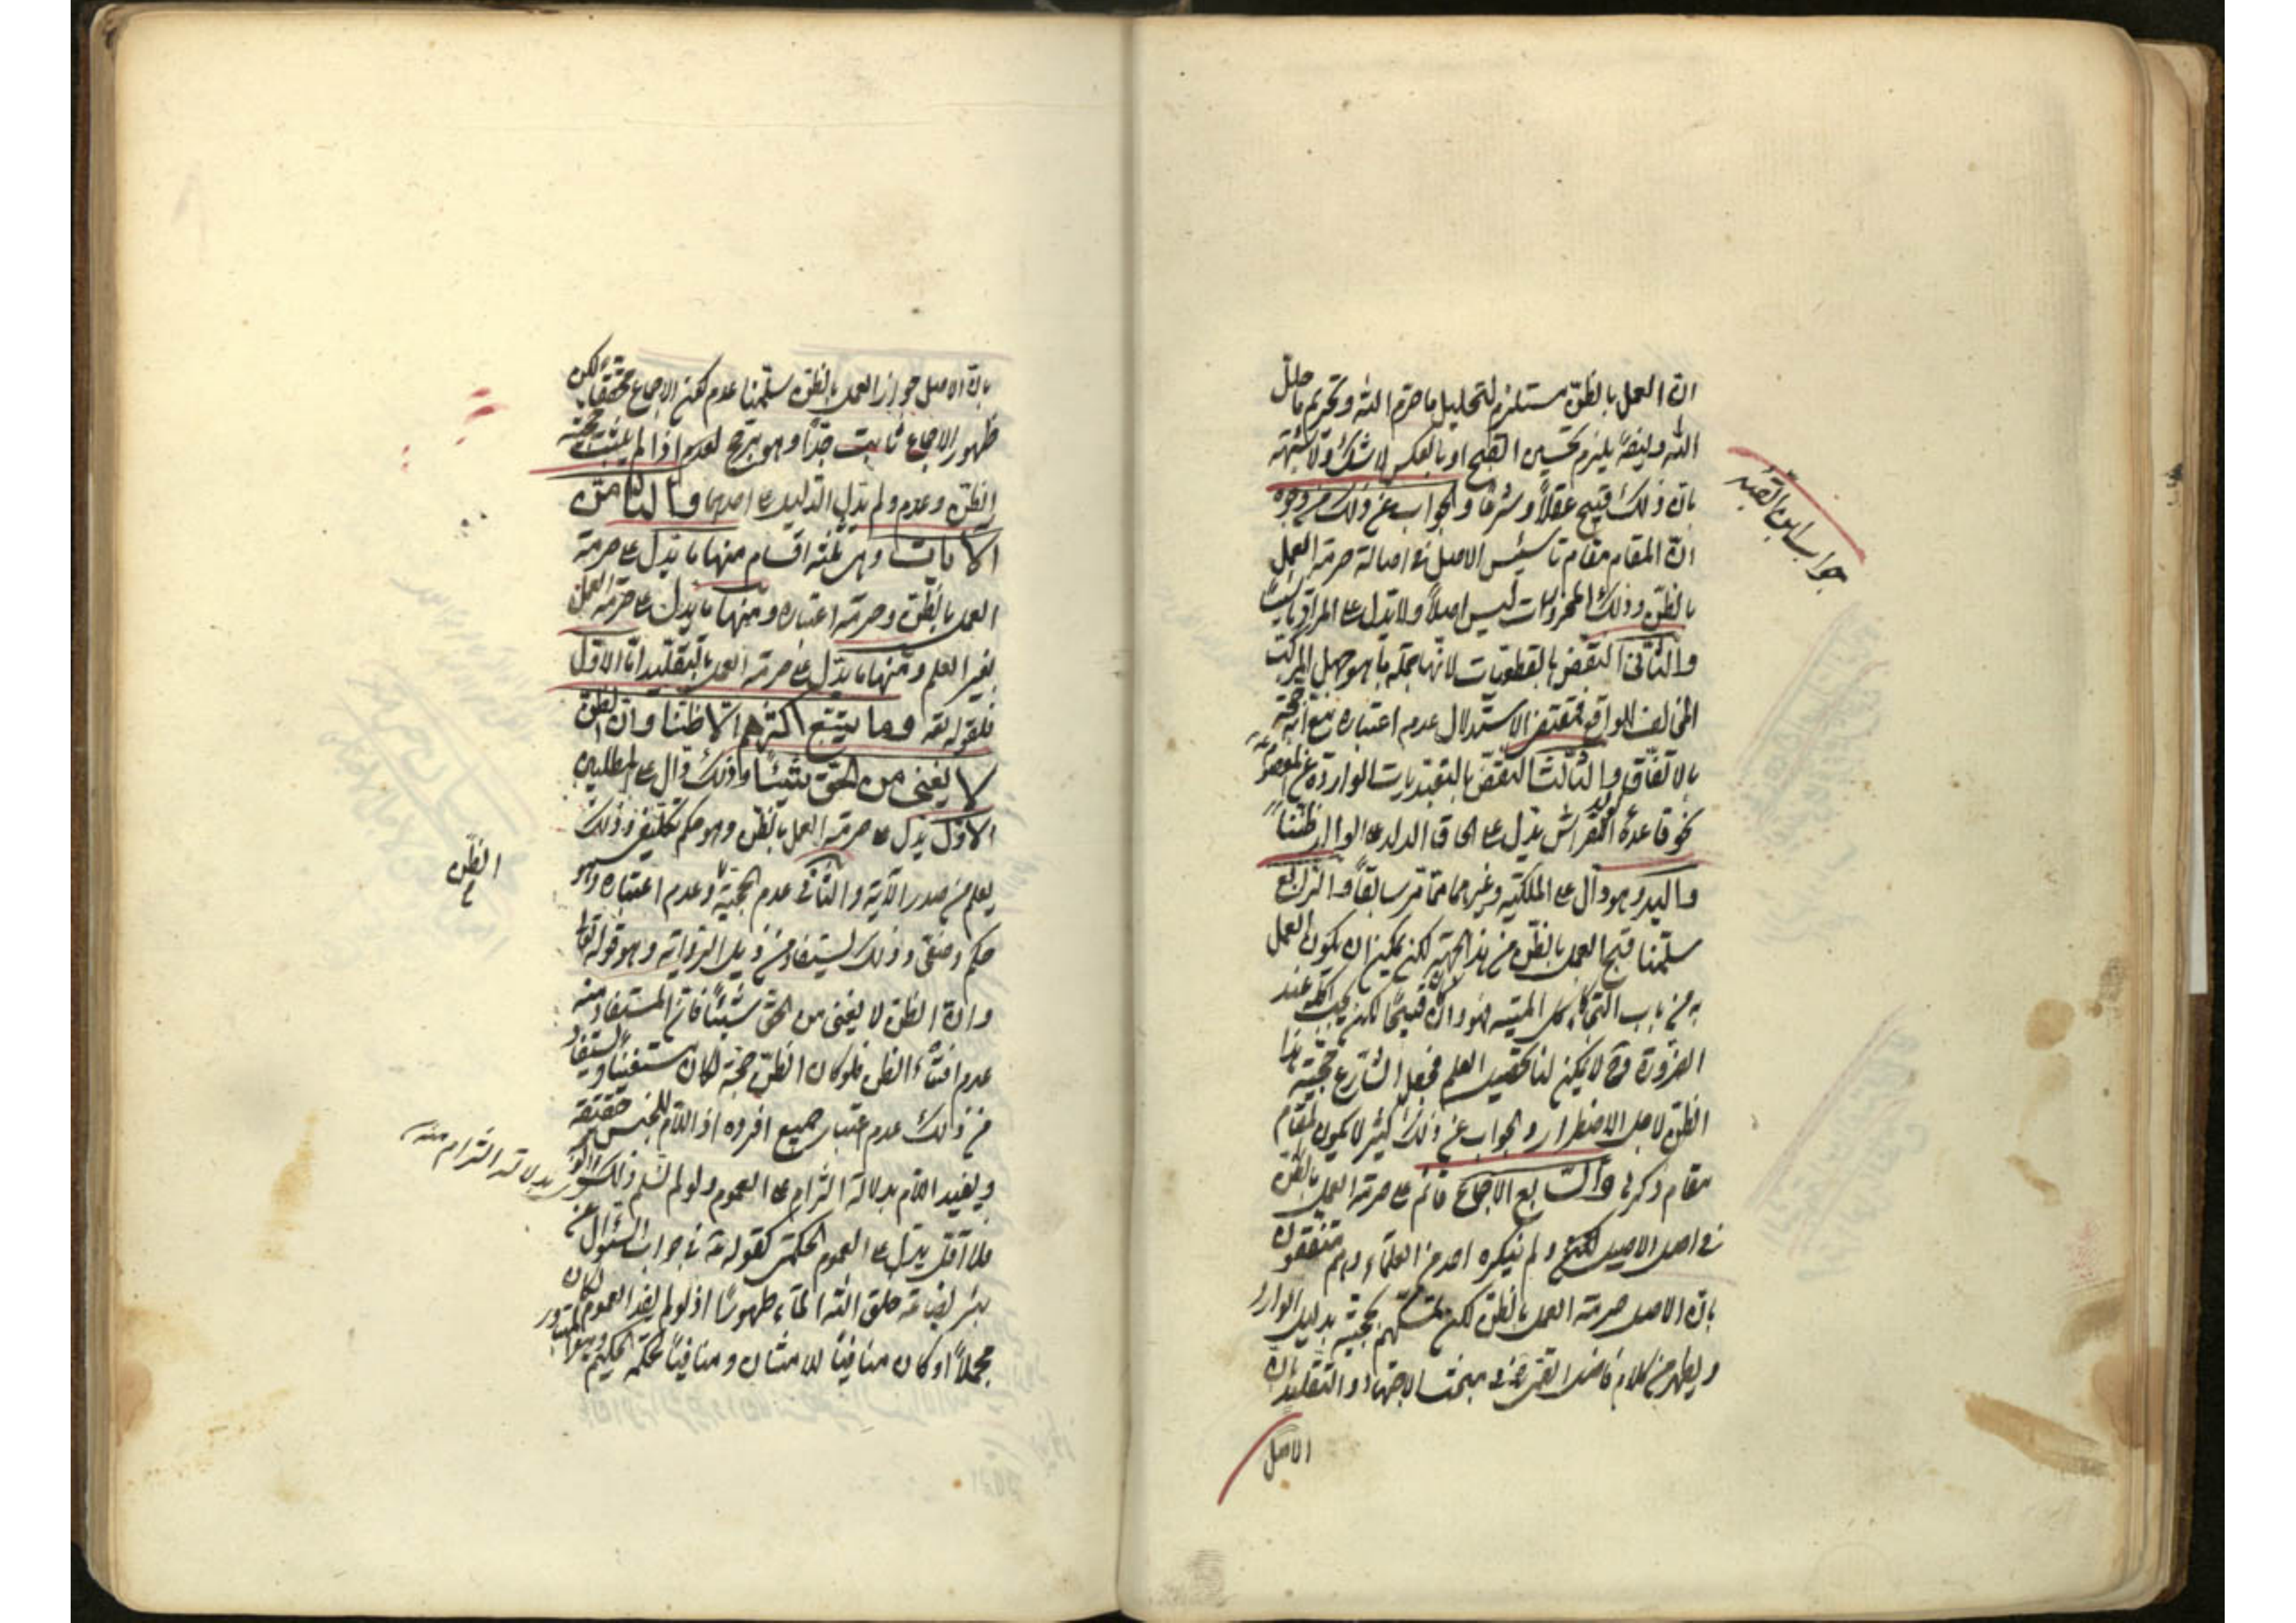 ان العمل بالظن مستلزم لتحليل ما حرم الله وتحريم ما حلل
الله وايضا يلزم تحسين القبح او بالعكس لا شك ولا شبهة
بان ذلك قبيح عقلا وشرعا والجواب عن ذلك من وجوه
ان المقام مقام تاسيس الاصل في اصالة حرمة العمل
بالظن وذلك ليس اصلا ولا تدل على المراد
والثاني النقض بالقطعيات لانها جهل المركب
المخالف للواقع فمقتضى الاستدلال عدم اعتباره مع انه حجة
بالاتفاق والثالث النقض بالتعبديات الواردة عن المعصوم
نحو قاعدة الفراش تدل على الحاق الولد على الوالد ظنا
واليد وهو دال على الملكية وغيرهما مما مر سابقا والرابع
سلمنا قبح العمل بالظن من هذا الجهة لكن يمكن ان يكون العمل
به من باب اكل الميتة فهو وان كان قبيحا لكن يجب اكله عند
الضرورة وح لا يمكن لنا تحصيل العلم فجعل الشارع حجية هذا
الظن لاجل الاضطرار والجواب عن ذلك كثير لا يكون المقام
مقام ذكره والسابع الاجماع قائم على حرمة العمل بالظن
في اصل الاصيل ولم ينكره احد من العلماء وهم متفقون
بان الاصل حرمة العمل بالظن لكن تمسكهم بحجية بدليل الوارد
ويظهر من كلام فاضل القمي في مبحث الاجتهاد والتقليد بان
الاصل
جواب ابن القبه
بان الاصل جواز العمل بالظن سلمنا عدم كون الاجماع محققا لكن
ظهور الاجماع ثابت جدا وهو مرجح لعدم اذا لم يثبت حجية
الظن وعدم ولم يدل الدليل على احدهما والثامن
الايات وهي ثلثة اقسام منها ما يدل على حرمة
العمل بالظن وحرمة اعتباره ومنها ما يدل على حرمة العمل
بغير العلم ومنها ما يدل على حرمة العمل بالتقليد اما الاول
فلقوله تعه وما يتبع اكثرهم الا ظنا وان الظن
لا يغني من الحق شيئا وذلك دال على المطلبين
الاول يدل على حرمة العمل بالظن وهو حكم تكليفي وذلك
يعلم من صدر الآية والثاني عدم حجية وعدم اعتباره وهو
حكم وضعي وذلك يستفاد من ذيل الرواية وهو قوله تعا
وان الظن لا يغني من الحق شيئا فان المستفاد منه
عدم اغناء الظن فلو كان الظن حجة لكان مستغنيا ويستفاد
من ذلك عدم اعتبار جميع افرده اذ اللام للجنس حقيقة
ويفيد اللام بدلالة التزام على العموم ولو لم نسلم ذلك
فلا اقل يدل على العموم الحكمتي كقوله في جواب السئوال عن
بئر بضاعة خلق الله الماء طهورا اذ لو لم يفد العموم لكان
مجملا او كان منافيا للامتنان ومنافيا لحكمة الحكيم
الظن
بدلالة التزام منه